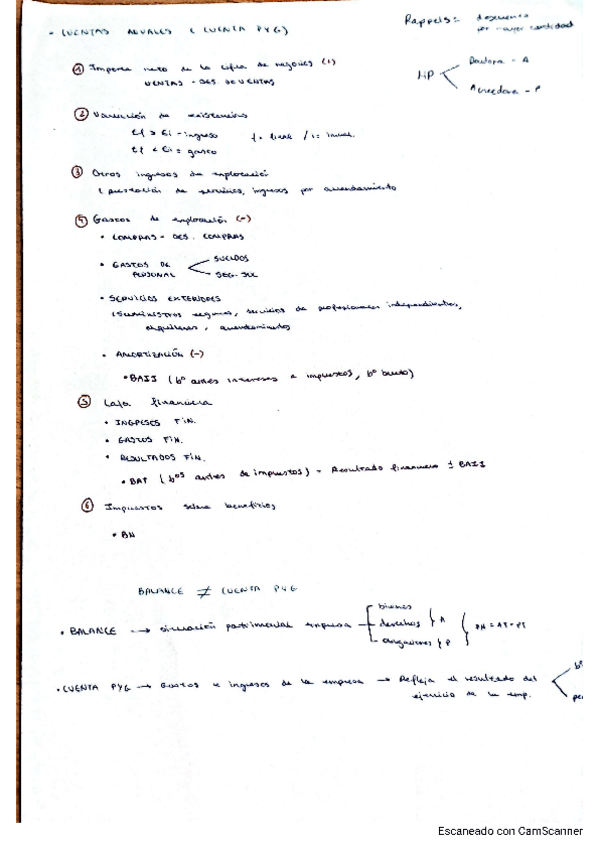 • CUENTAS ANUALES (CUENTA PYG)
Rappels: descuento
por mayor cantidad
① Importe neto de la cifra de negocios (1)
VENTAS - DES. DE VENTAS
HP
Deudora - A
Acreedora - P
② Variación de existencias
Ef > Ei - ingreso
f = final / i = inicial
Ef < Ei = gasto
③ Otros ingresos de explotación
(prestación de servicios, ingresos por arrendamiento
④ Gastos de explotación (-)
• COMPRAS - DES. COMPRAS
• GASTOS DE PERSONAL
SUELDOS
SEG. SOC
• SERVICIOS EXTERIORES
(Suministros seguros, servicios de profesionales independientes,
alquileres, arrendamientos
• AMORTIZACIÓN (-)
• BAII (bº antes intereses e impuestos, bº bruto)
⑤ financiera
• INGRESOS FIN.
• GASTOS FIN.
• RESULTADOS FIN.
• BAT (bºs antes de impuestos) = Resultado financiero ± BAII
⑥ Impuestos sobre beneficios
• BN
BALANCE ≠ CUENTA PYG
• BALANCE → situación patrimonial empresa
bienes
derechos } A
obligaciones } P
PN = AT - PT
• CUENTA PYG → Gastos e ingresos de la empresa → Refleja el resultado del
ejercicio de la emp.
bº
Escaneado con CamScanner